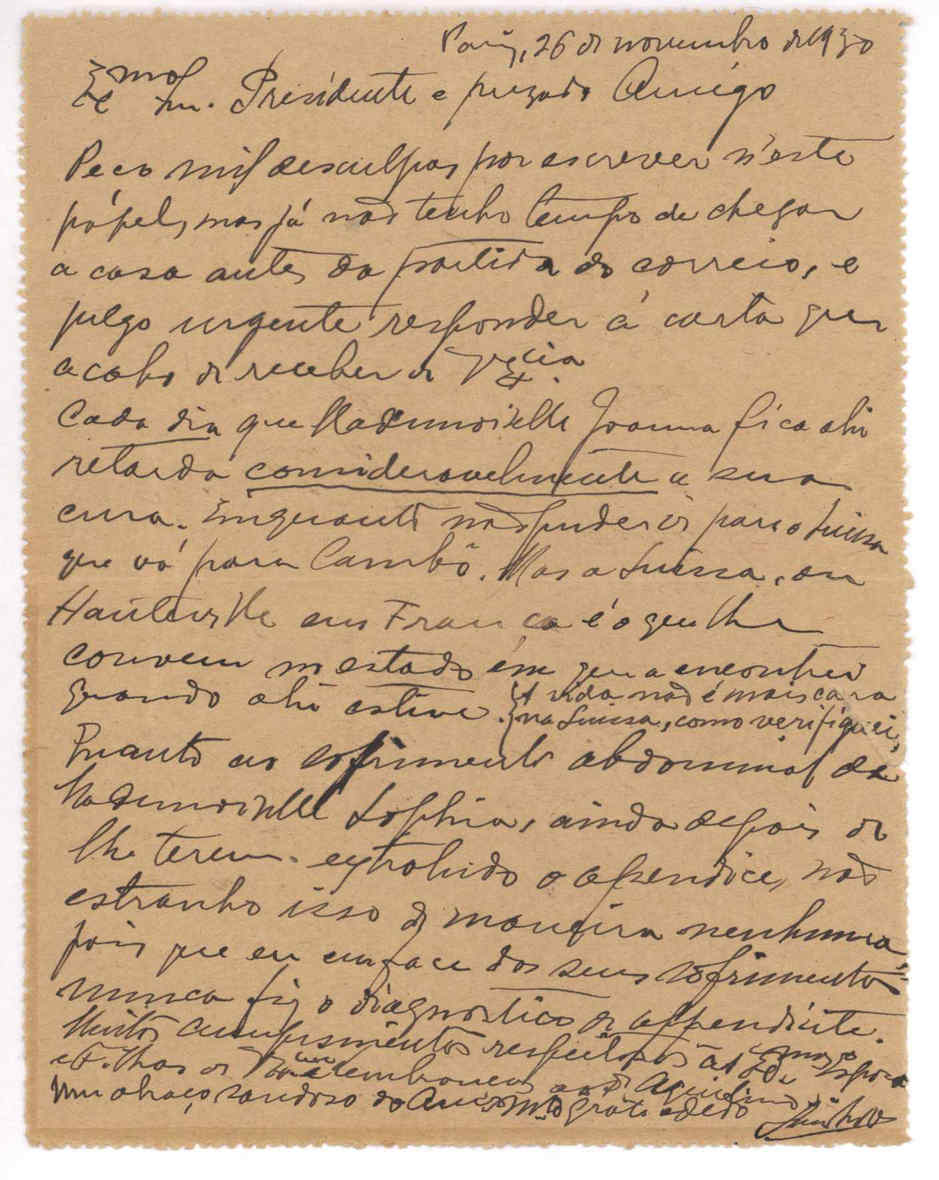 Paris, 26 de novembro de 1930
Exmo Snr. Presidente e prezado Amigo
Peço mil desculpas por escrever n'este
pápel, mas já não tenho tempo de chegar
a casa antes da partida do correio, e
julgo urgente responder á carta que
acabo de receber de V. Excia
Cada dia que Mademoiselle Joanna fica ahi
retarda consideravelmente a sua
cura. Emquanto não puder ir para a Suissa
que vá para Cambô. Mas a Suissa, ou
Hauteville em França é o que lhe
convem no estado em que a encontrei
quando ahi estive. A vida não é mais cara
na Suissa, como verifiquei,
Quanto ao sofrimento abdominal de
Mademoiselle Sophia, ainda depois de
lhe terem extrahido o apendice, não
estranho isso de maneira nenhuma
pois que eu em face dos seus sofrimentos
nunca fiz o diagnostico de appendicite.
Muitos cumprimentos respeitosos á Exma Esposa
e Filhas de lembranças ao Aquilino
Um abraço saudoso do Amigo mto grato e dedo